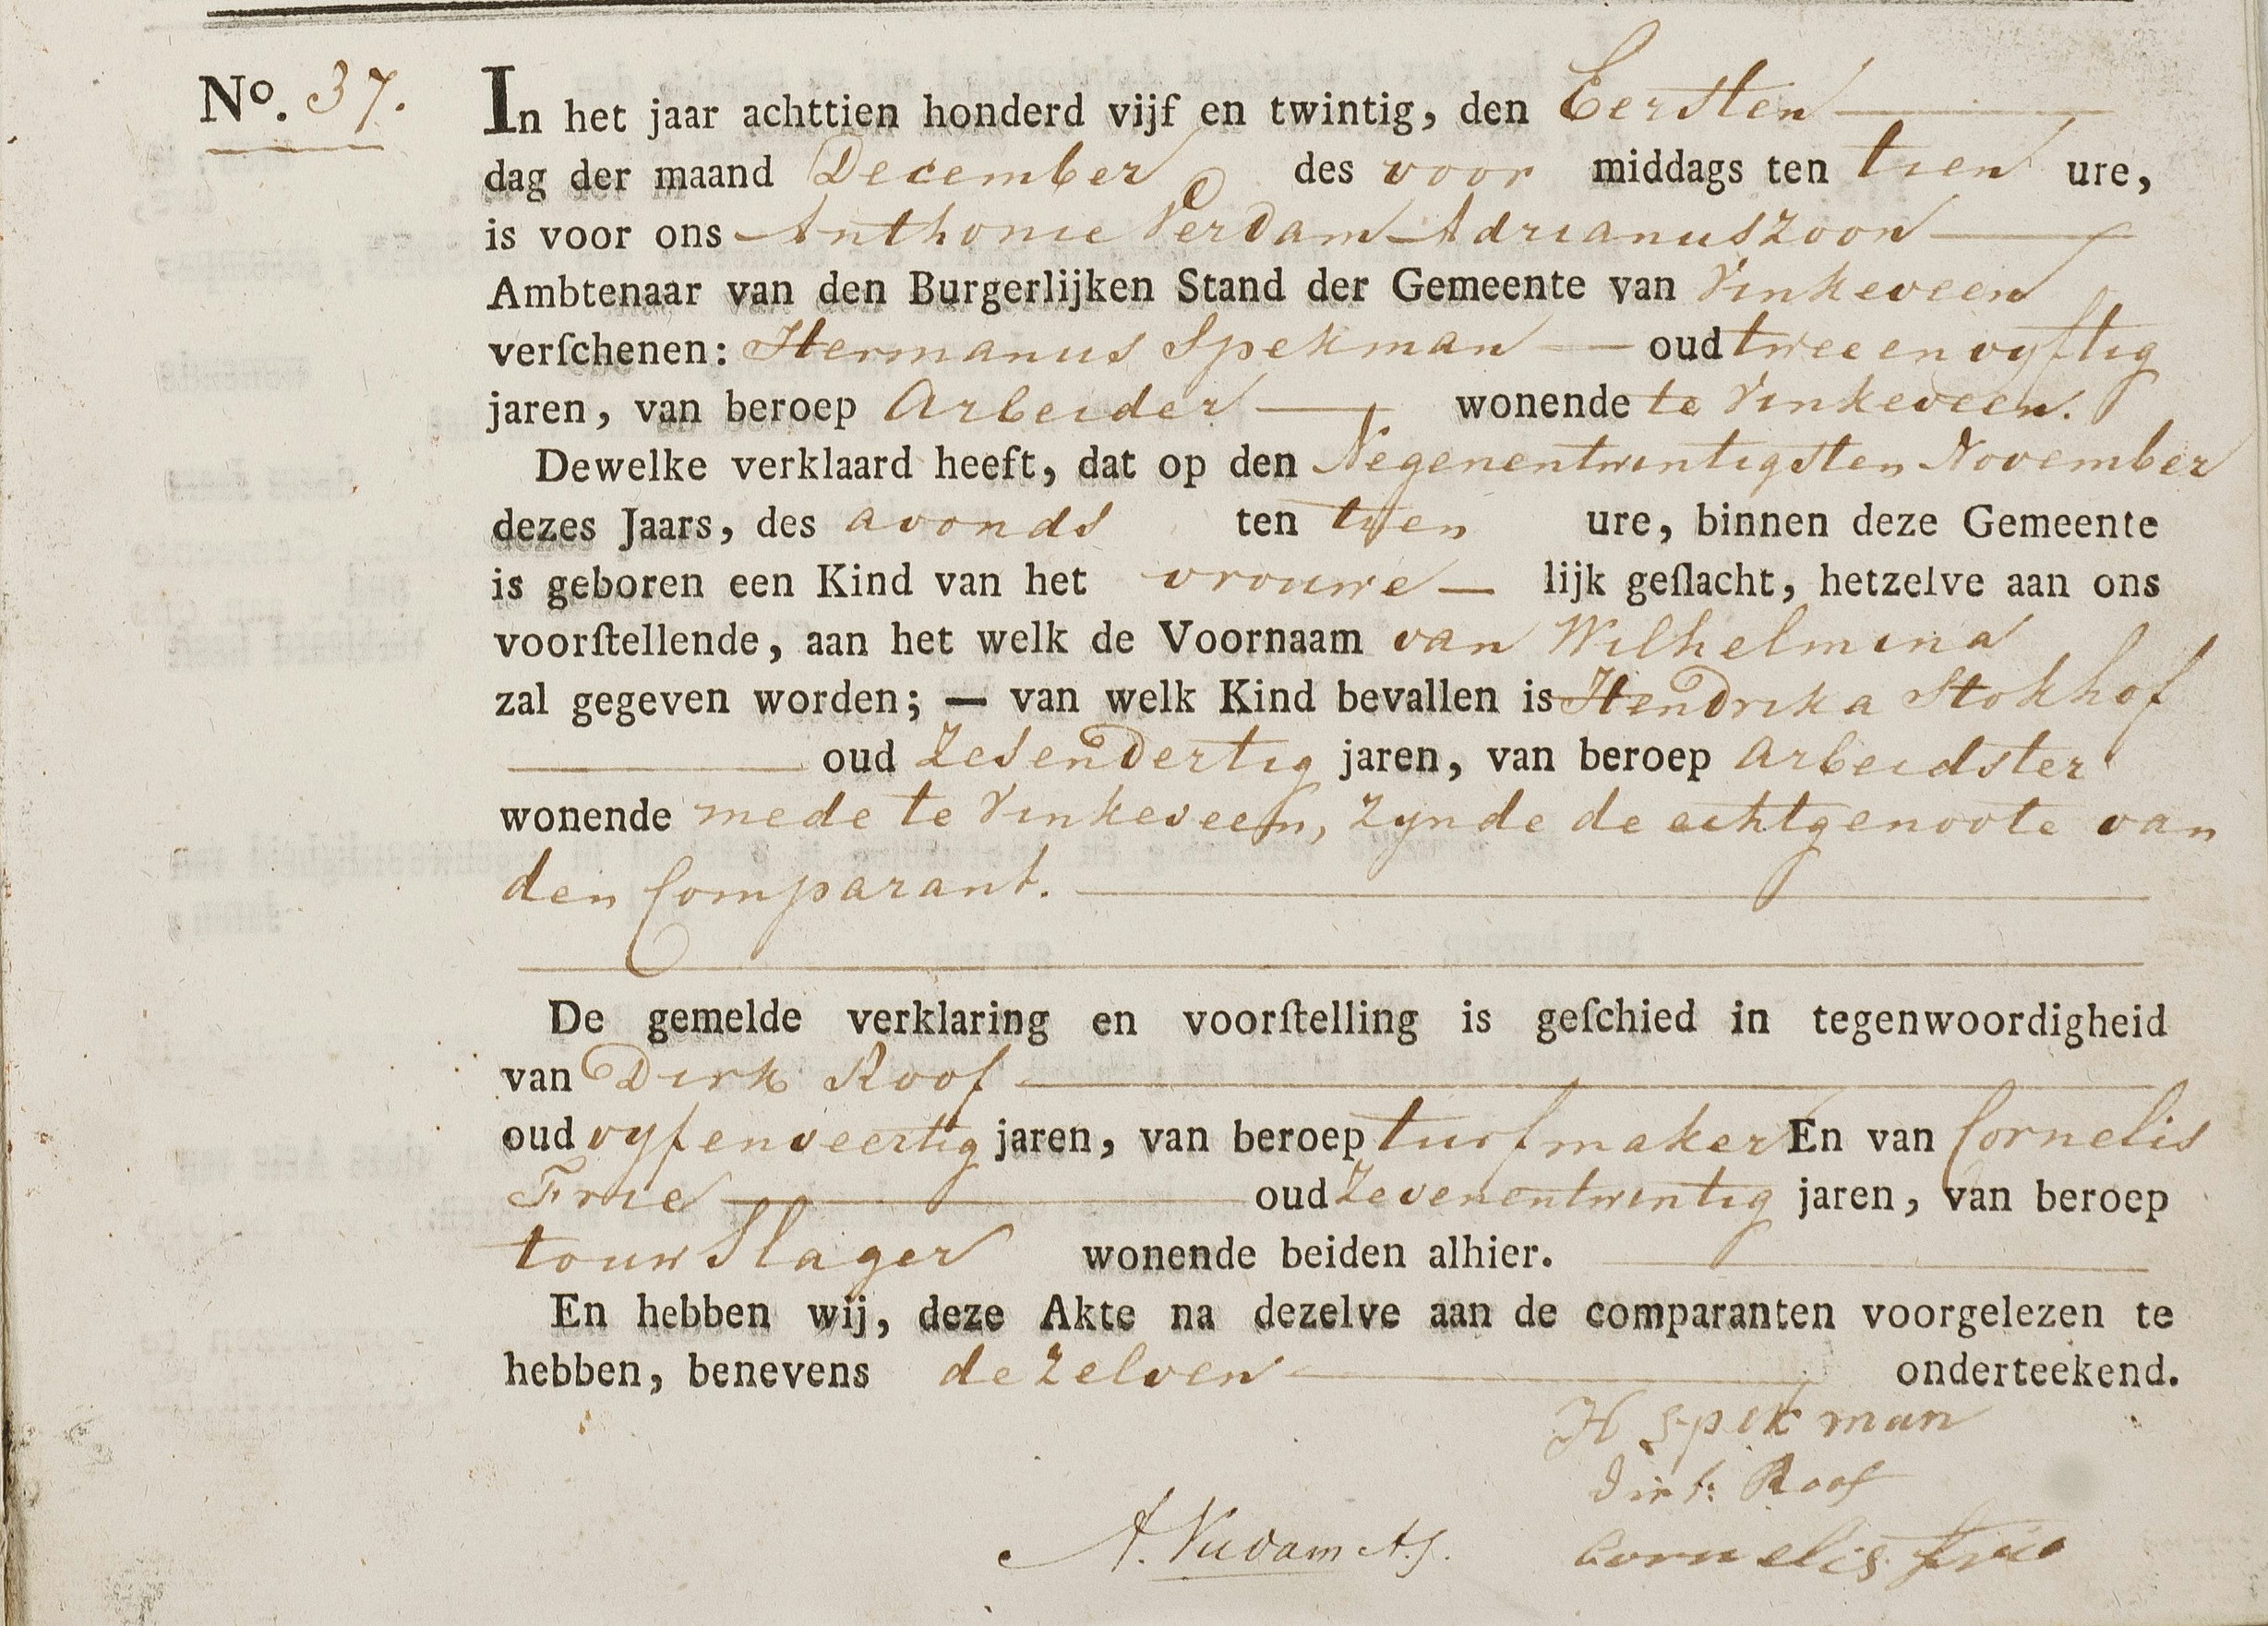 No. 37. In het jaar achttien honderd vijf en twintig, den Eersten
dag der maand December des voor middags ten tien ure,
is voor ons Anthonie Verdam Adrianuszoon
Ambtenaar van den Burgerlijken Stand der Gemeente van Vinkeveen
verſchenen: Hermanus Spekman oud twee en vyftig
jaren, van beroep Arbeider wonende te Vinkeveen.
Dewelke verklaard heeft, dat op den Negenentwintigsten November
dezes Jaars, des avonds ten tien ure, binnen deze Gemeente
is geboren een Kind van het vrouwe- lijk geſlacht, hetzelve aan ons
voorſtellende, aan het welk de Voornaam van Wilhelmina
zal gegeven worden; — van welk Kind bevallen is Hendrika Stokhof
oud Zesendertig jaren, van beroep arbeidster
wonende mede te Vinkeveen, zynde de echtgenoote van
den Comparant.
De gemelde verklaring en voorſtelling is geſchied in tegenwoordigheid
van Dirk Roof
oud vyfenveertig jaren, van beroep turfmaker En van Cornelis
Frie oud Zevenentwintig jaren, van beroep
touwslager wonende beiden alhier.
En hebben wij, deze Akte na dezelve aan de comparanten voorgelezen te
hebben, benevens dezelven onderteekend.
H Spekman
Dirk Roof
A. Verdam Az.
Cornelis Frie